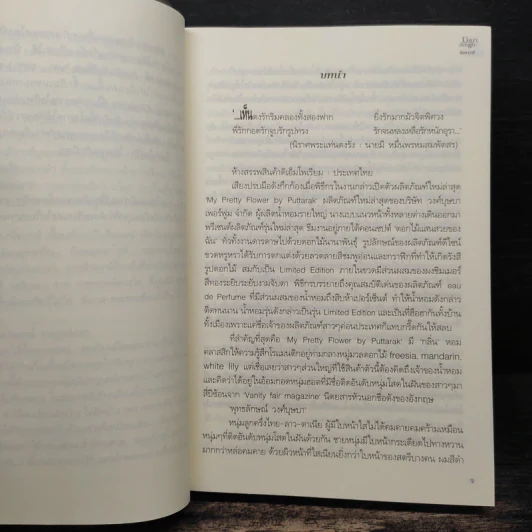 บทนำ
'...เห็นดงรักริมคลองทั้งสองฟาก ยิ่งรักมากมัวจิตพิศวง
พี่รักกอดรักจูบรักรูปทรง รักจนหลงเหลือรักหนักอุรา...'
(นิราศพระแท่นดงรัง : นายมี หมื่นพรหมสมพัตสร)
ห้างสรรพสินค้าดิเอ็มโพเรียม : ประเทศไทย
เสียงปรบมือดังกึกก้องเมื่อพิธีกรในงานกล่าวเปิดตัวผลิตภัณฑ์ใหม่ล่าสุด
'My Pretty Flower by Puttarak' ผลิตภัณฑ์ใหม่ล่าสุดของบริษัท วงศ์บุษบา
เพอร์ฟูม จำกัด ผู้ผลิตน้ำหอมรายใหญ่ นางแบบแนวหน้าทั้งหลายต่างเดินออกมา
พรีเซนต์ผลิตภัณฑ์รุ่นใหม่ล่าสุด ธีมงานอยู่ภายใต้คอนเซปต์ 'ดอกไม้แสนสวยของ
ฉัน' ทั่วทั้งงานดารดาษไปด้วยดอกไม้นานาพันธุ์ รูปลักษณ์ของผลิตภัณฑ์ดีไซน์
ขวดหรูหราได้รับการตกแต่งด้วยลวดลายสีชมพูอ่อนและกราฟิกที่ทำให้เกิดรังสี
รูปดอกไม้ สมกับเป็น Limited Edition ภายในขวดมีส่วนผสมของผงชิมเมอร์
สีทองระยิบระยับงามจับตา พิธีกรบรรยายถึงคุณสมบัติเด่นของผลิตภัณฑ์ eau
de Perfume ที่มีส่วนผสมของน้ำหอมถึงสิบห้าเปอร์เซ็นต์ ทำให้น้ำหอมดังกล่าว
ติดทนนาน น้ำหอมรุ่นดังกล่าวเป็นรุ่น Limited Edition และเป็นที่ฮือฮากันทั้งบ้าน
ทั้งเมืองเพราะแค่ชื่อเจ้าของผลิตภัณฑ์สาวๆค่อนประเทศก็แทบกรี๊ดกันให้สลบ
ที่สำคัญที่สุดคือ 'My Pretty Flower by Puttarak' มี 'กลิ่น' หอม
คลาสสิกให้ความรู้สึกโรแมนติกอยู่ท่ามกลางหมู่มวลดอกไม้ freesia, mandarin,
white lily แต่เชื่อเลยว่าสาวๆส่วนใหญ่ที่ใช้สินค้าตัวนี้ต้องคิดถึงเจ้าของน้ำหอม
และคิดว่าได้อยู่ในอ้อมกอดหนุ่มฮอตที่มีชื่อติดอันดับหนุ่มโสดในฝันของสาวๆมา
สี่ปีซ้อนจาก 'Vanity fair magazine' นิตยสารหัวนอกชื่อดังของอังกฤษ
พุทธลักษณ์ วงศ์บุษบา
หนุ่มลูกครึ่งไทย-ลาว-ตาเนีย ผู้มีใบหน้าใสไม่ได้คมคายคมคร้ามเหมือน
หนุ่มๆที่ติดอันดับหนุ่มโสดในฝันด้วยกัน ชายหนุ่มมีใบหน้ากระเดียดไปทางหวาน
มากกว่าหล่อคมคาย ด้วยผิวหน้าที่ใสเนียนยิ่งกว่าใบหน้าของสตรีบางคน ผมสีดำ
9